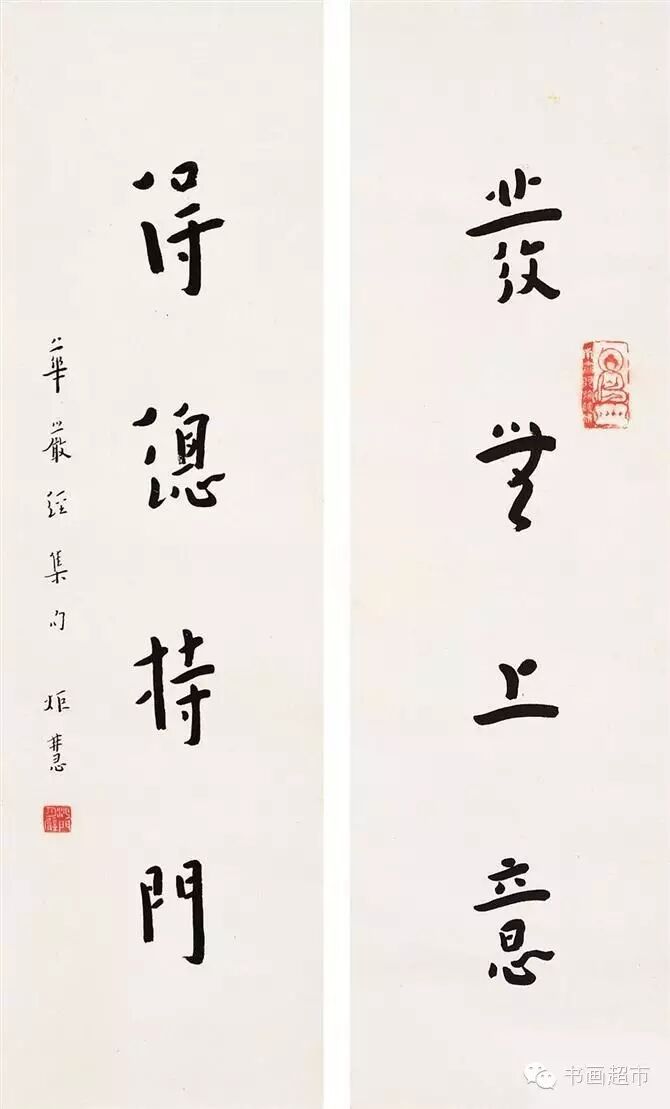 發無上意
得總持門
華嚴經集句 炬慧
书画超市